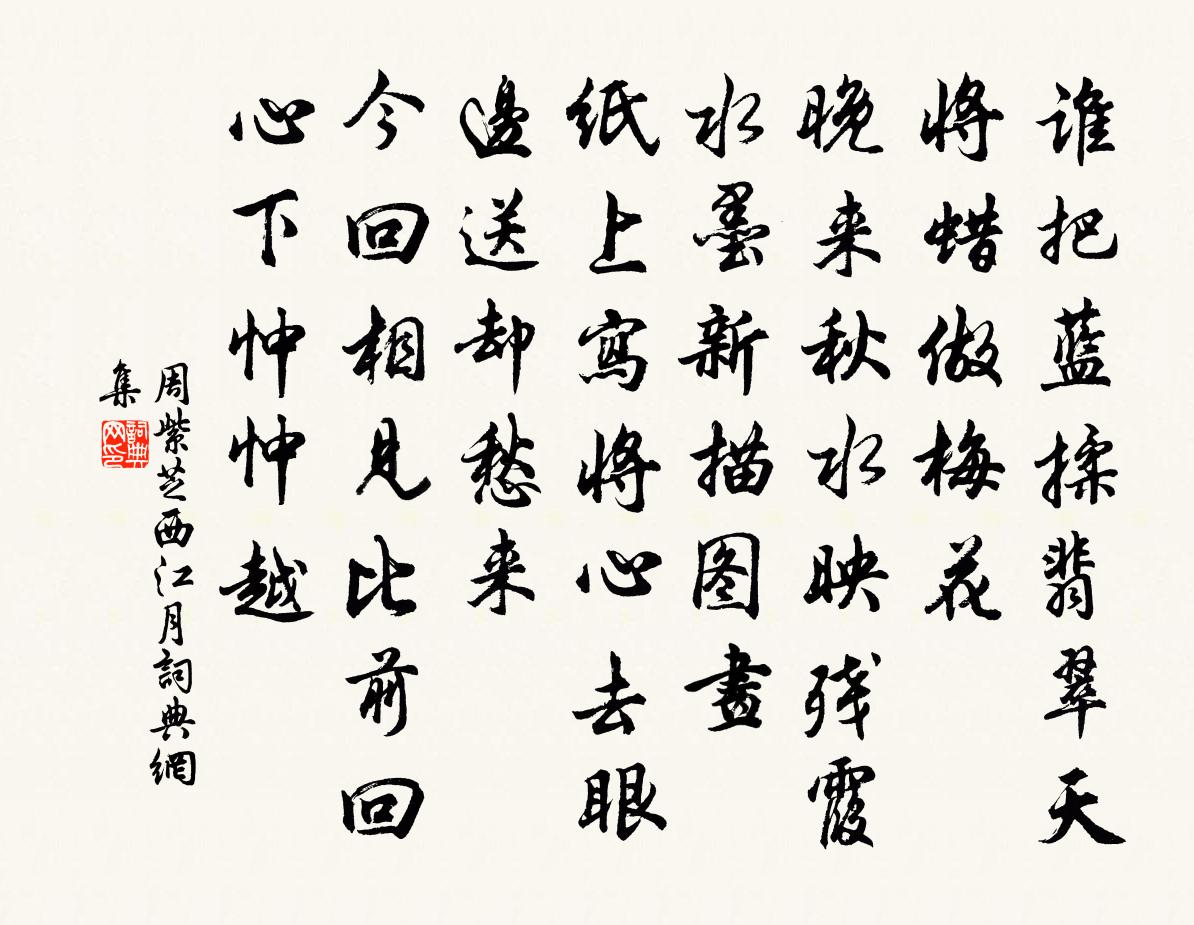 谁把蓝揉翡翠天
将蜡做梅花
晚来秋水映残霞
水墨新描图畫
纸上寫将心去眼
邊送却愁来
今回相見比前回
心下忡忡越
周紫芝西江月詞典網
集
詞典网印